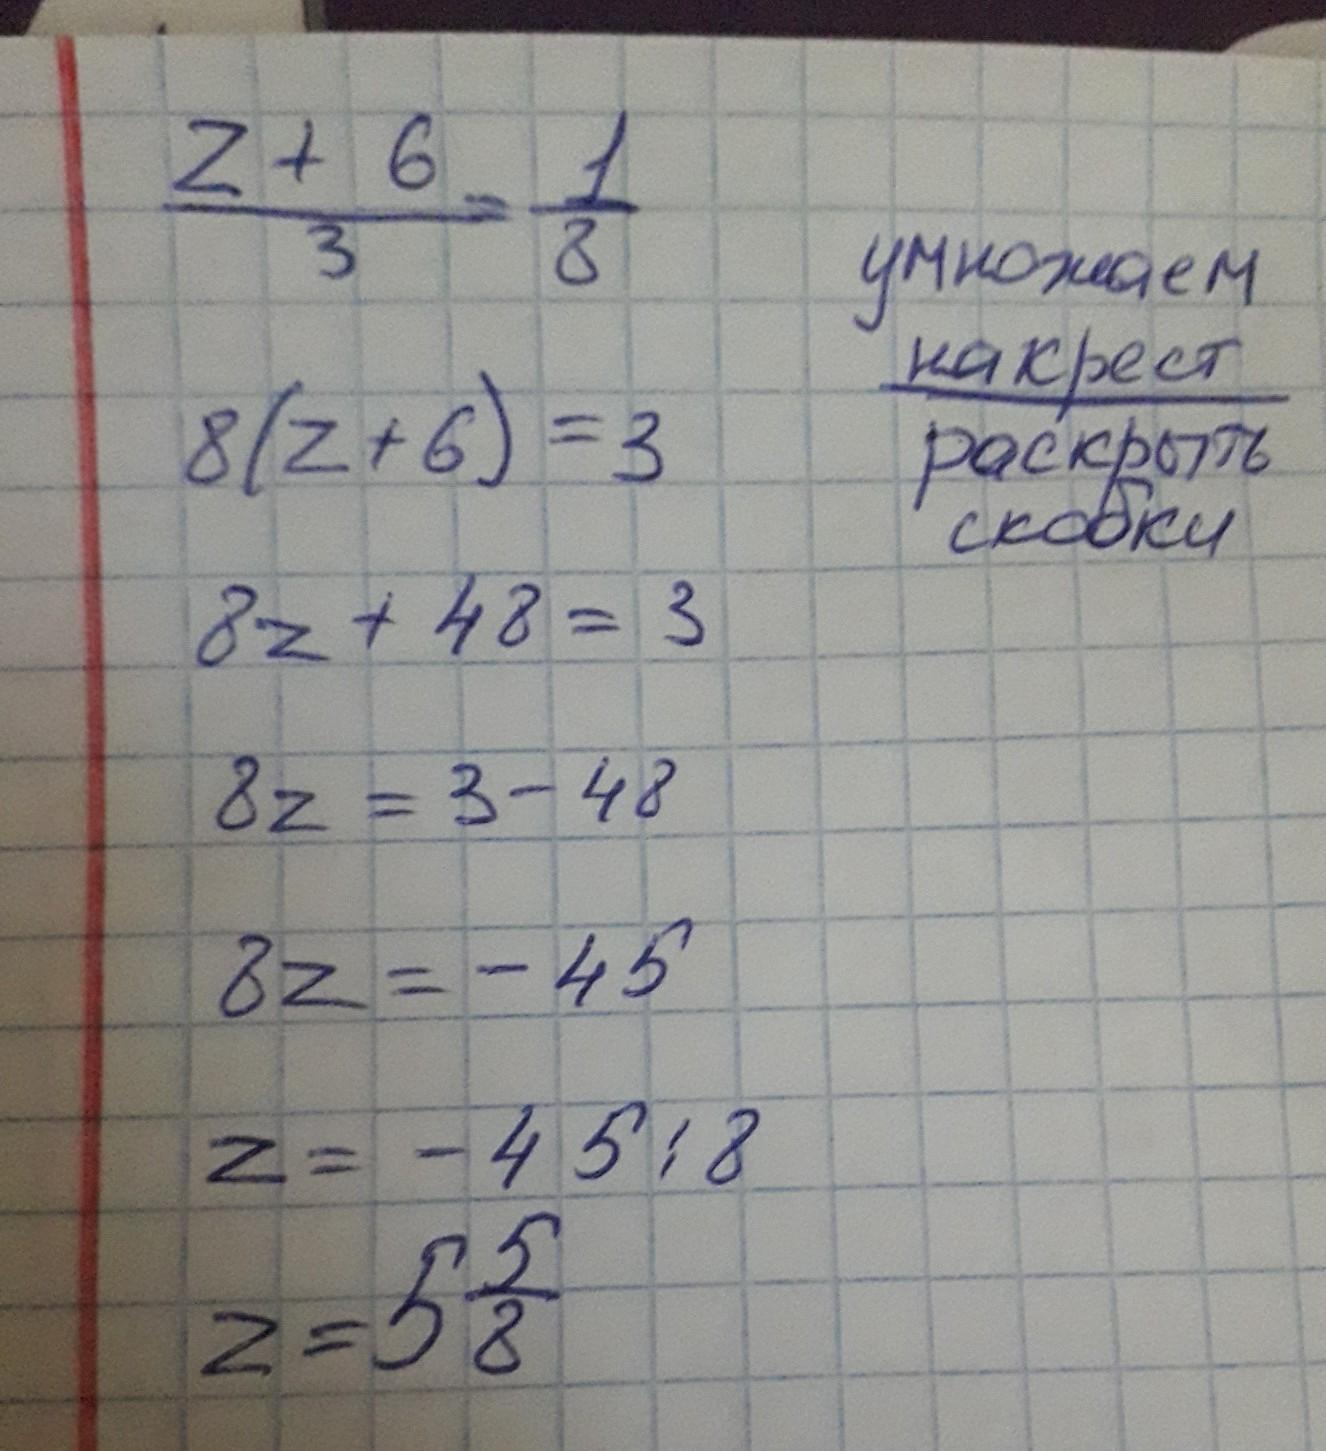 z + 6 / 3 = 1 / 8
умножаем
накрест
8(z+6) = 3
раскрыть
скобки
8z + 48 = 3
8z = 3 - 48
8z = - 45
z = - 45 : 8
z = 5 5/8